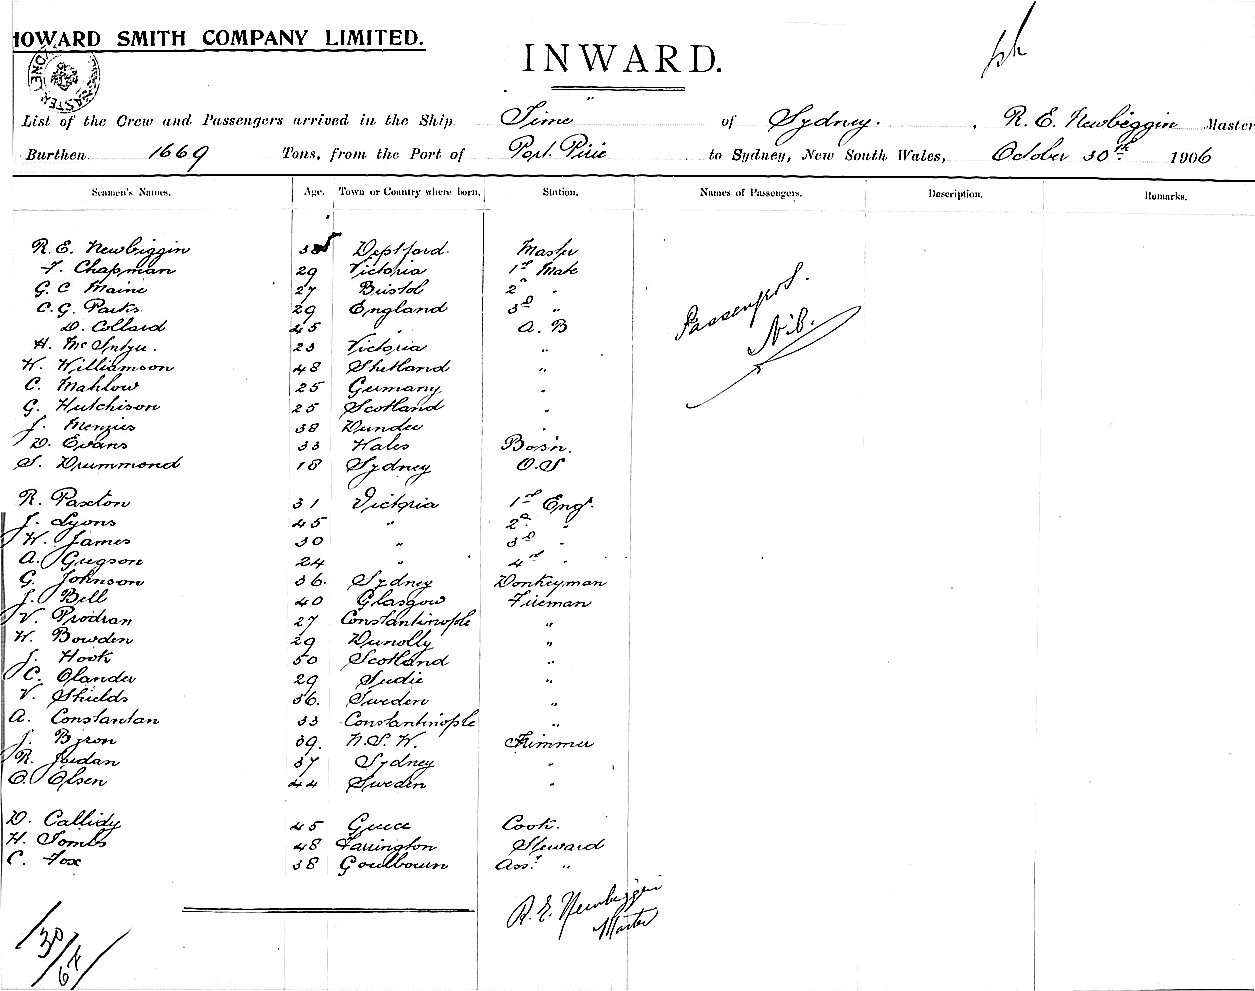 HOWARD SMITH COMPANY LIMITED.
INWARD.
List of the Crew and Passengers arrived in the Ship Time of Sydney. R. E. Newbiggin Master
Burthen 1669 Tons, from the Port of Port Pirie to Sydney, New South Wales, October 30th 1906
Seamen's Names. Age. Town or Country where born. Station. Names of Passengers. Description. Remarks.
R. E. Newbiggin 38 Deptford. Master
F. Chapman 29 Victoria 1st Mate
G C Maine 27 Bristol 2nd "
C. G. Parks 29 England 3d "
D. Collard 45 " A. B
H. McIntyre. 23 Victoria "
W. Williamson 48 Shetland "
C. Mahlow 25 Germany "
G. Hutchison 25 Scotland "
J. Menzies 38 Dundee "
D. Evans 33 Wales Bosn.
S. Drummond 18 Sydney O.S
Passengers.
Nil.
R. Paxton 31 Victoria 1st Eng.
J. Lyons 45 " 2nd "
W. James 30 " 3d "
A. Gregson 24 " 4th "
G. Johnson 36. Sydney Donkeyman
J. Bell 40 Glasgow Fireman
V. Prodran 27 Constantinople "
W. Bowden 29 Dunolly "
J. Hook 50 Scotland "
C. Olander 29 "
V. Shields 36. Sweden "
A. Constantan 33 Constantinople "
J. Byron 39. N. S. W. Trimmer
R. Jordan 37 Sydney "
O. Olsen 44 Sweden "
D. Callidy 45 Greece Cook.
H. Tombs 48 Farrington Steward
C. Fox 38 Goulbourn Asst. "
R. E. Newbiggin
Master